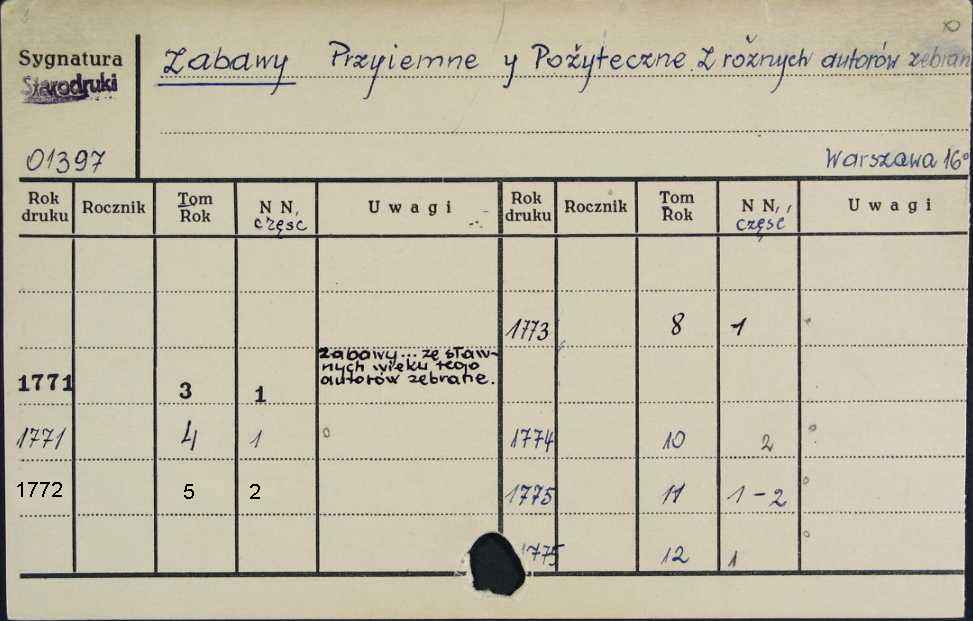 Sygnatura
Starodruki
Zabawy Przyiemne y Pożyteczne. Z różnych autorów zebran
01397
Warszawa 16°
Rok druku Rocznik Tom Rok N N, część Uwagi Rok druku Rocznik Tom Rok N N, część Uwagi
1773 8 1
Zabawy... ze sław-
nych wieku tego
autorów zebrane.
1771 3 1
1771 4 1 1774 10 2
1772 5 2 1775 11 1-2
1775 12 1